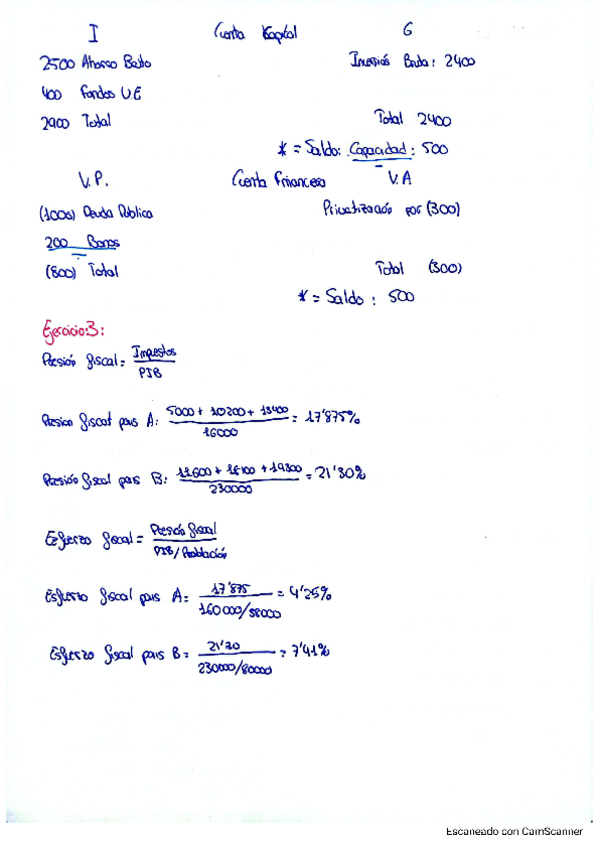 I Cuenta Kapital G
2500 Ahorro Bruto Inversión Bruta: 2400
400 Fondos UE
2900 Total Total 2400
* = Saldo: Capacidad: 500
V.P. Cuenta Financiera V.A
(1000) Deuda Pública Privatización por (300)
200 Bonos
(800) Total Total (300)
* = Saldo: 500
Ejercicio 3:
Presión fiscal = Impuestos / PIB
Presion fiscal pais A: 5000 + 10200 + 13400 / 16000 = 17'875%
Presión fiscal pais B: 11600 + 18100 + 19300 / 230000 = 21'30%
Esfuerzo fiscal = Presión fiscal / PIB/Población
Esfuerzo fiscal pais A = 17'875 / 160000/38000 = 4'25%
Esfuerzo fiscal pais B = 21'30 / 230000/80000 = 7'41%
Escaneado con CamScanner